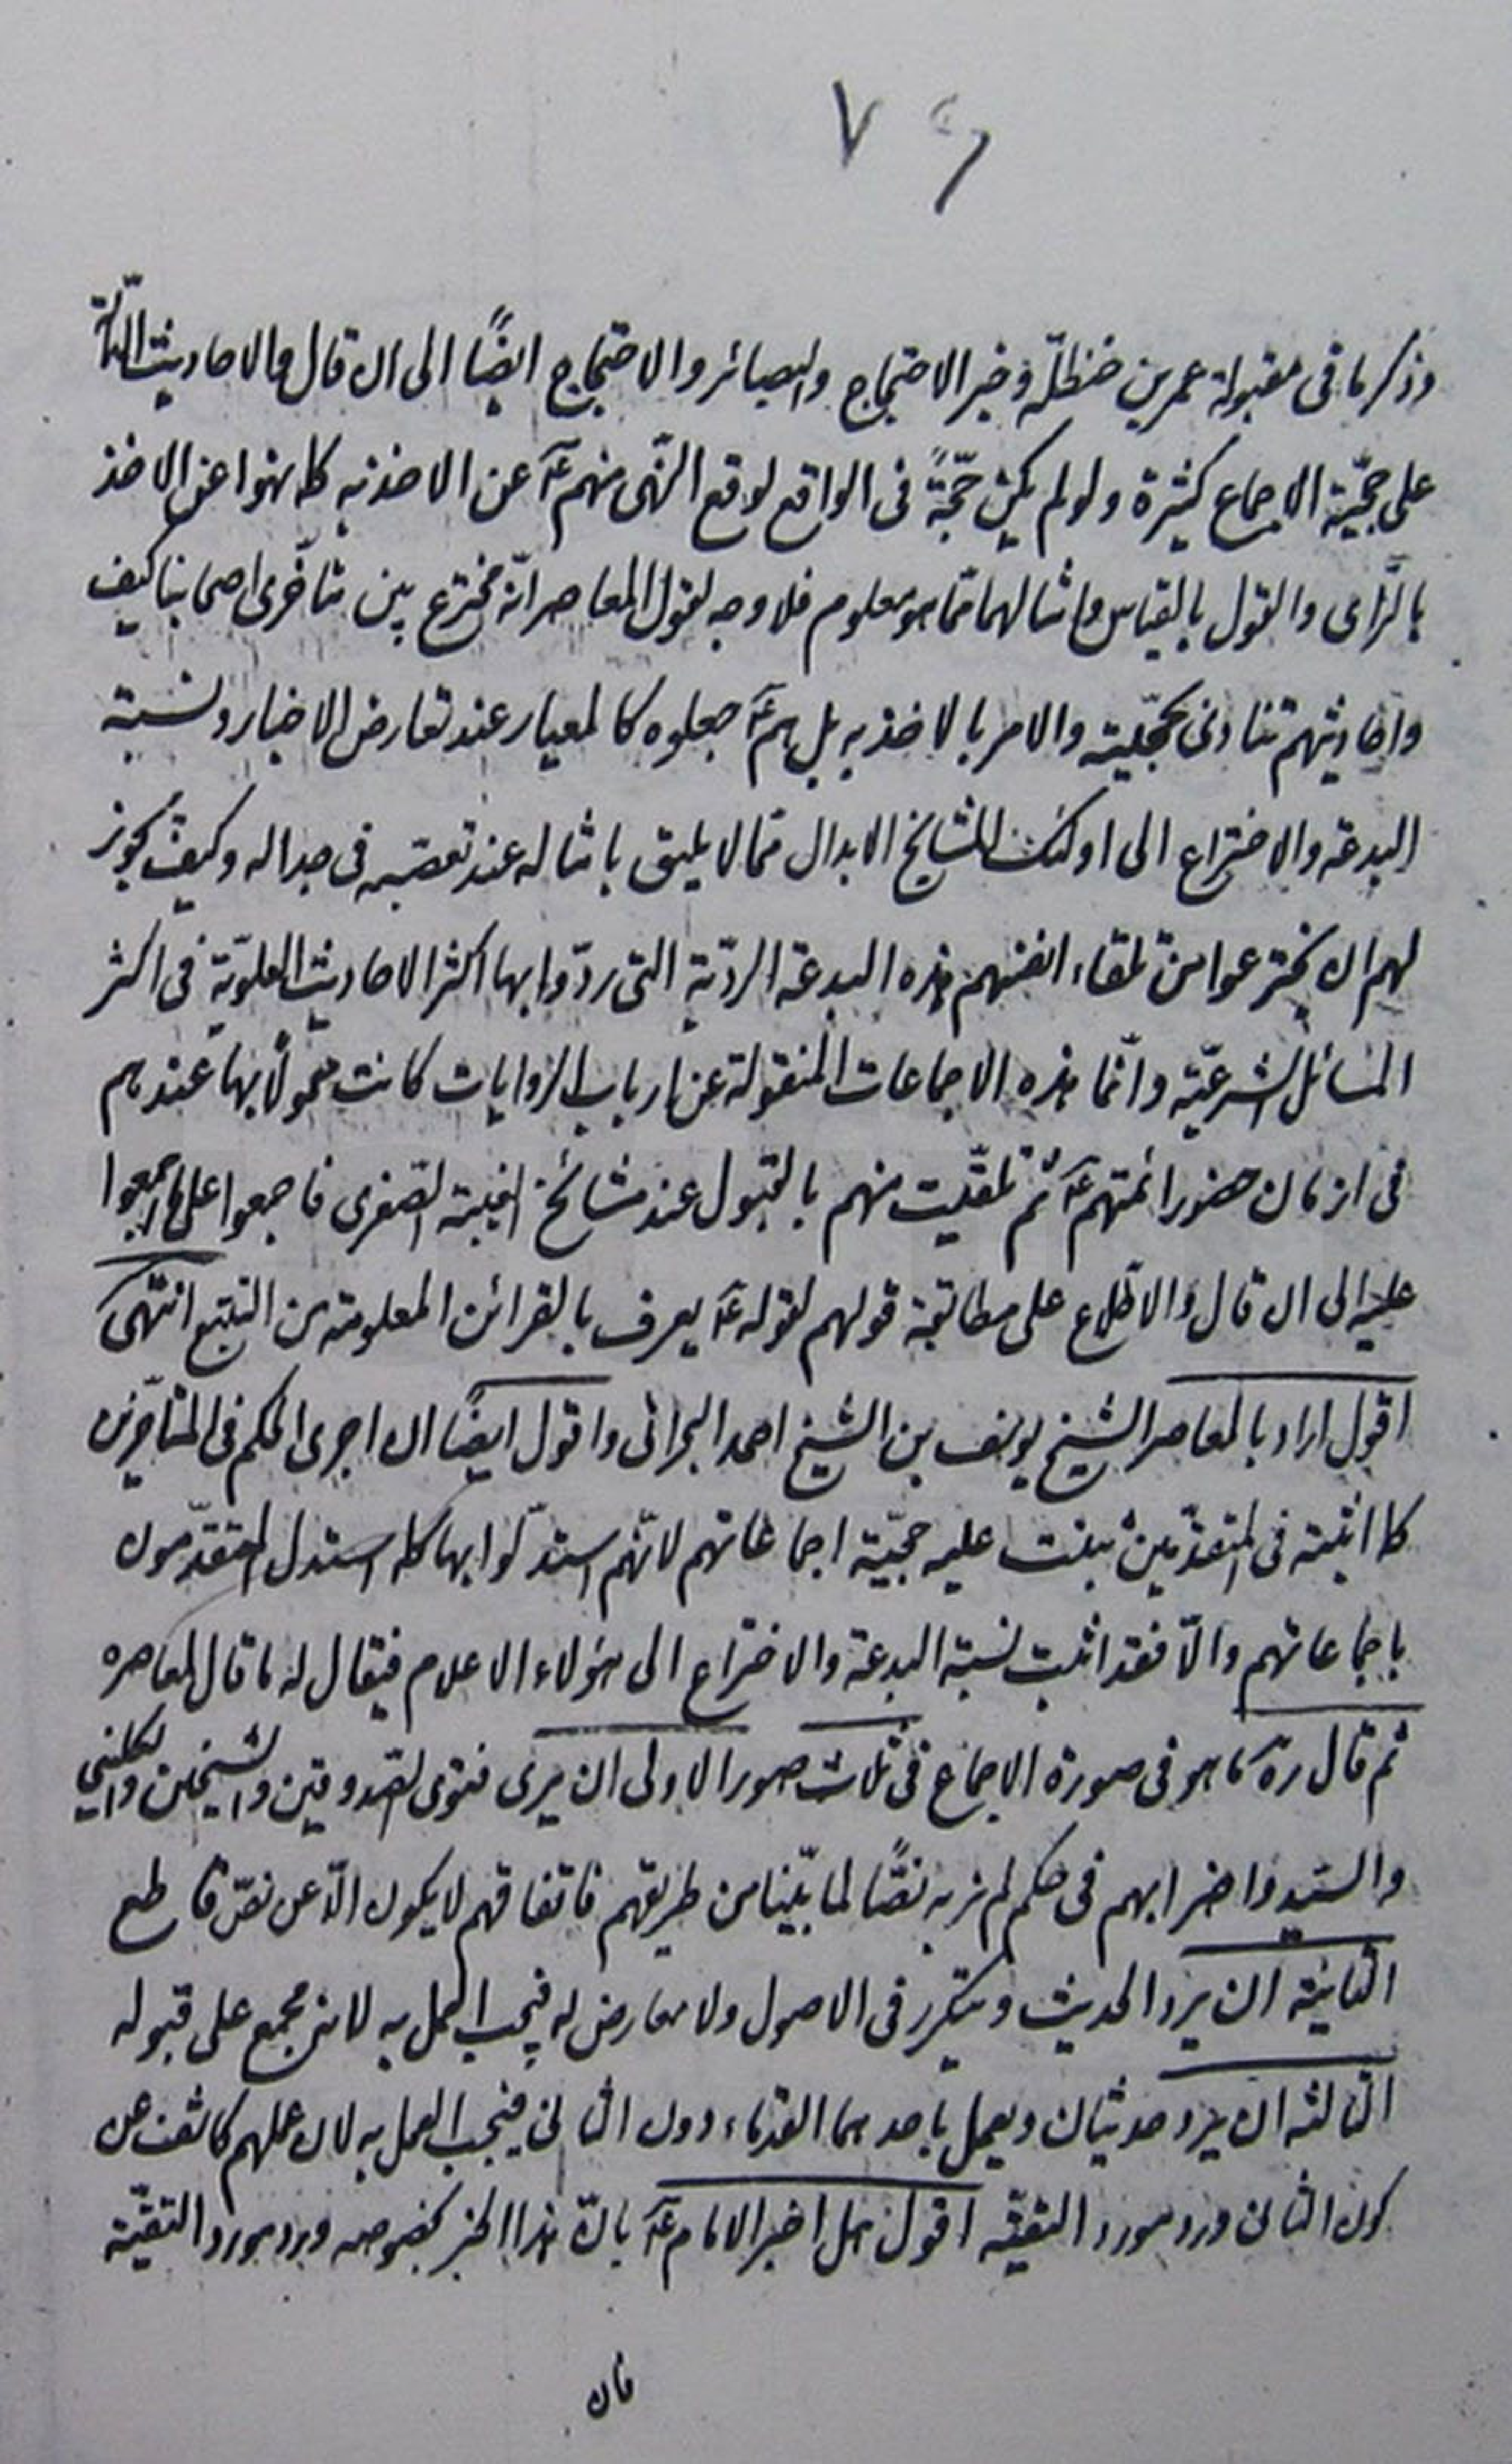 وذكر ما فى مقبولة عمر بن حنظلة وخبر الاحتجاج والبصائر والاحتجاج ايضًا الى ان قال والاحاديث الدالّة
على حجّيّة الاجماع كثيرة ولو لم يكن حجّةً فى الواقع لوقع النّهى منهم عۤ عن الاخذ به كما نهوا عن الاخذ
بالرّاى والقول بالقياس وامثالهما ممّا هو معلوم فلا وجه لقول المعاصر انّه مخترع بين متأخّرى اصحابنا كيف
واحاديثهم تنادى بحجّيّته والامر بالاخذ به بل هم عۤ جعلوه كالمعيار عند تعارض الاخبار ونسبة
البدعة والاختراع الى اولئك المشايخ الابدال ممّا لا يليق بامثاله عند تعصّبه فى جداله وكيف يجوز
لهم ان يخترعوا من تلقاء انفسهم هذه البدعة الرديّة التى ردّوا بها اكثر الاحاديث العلويّة فى اكثر
المسائل الشرعيّة وانّما هذه الاجماعات المنقولة عن ارباب الروايات كانت معمولًا بها عندهم
فى ازمان حضور ائمتهم عۤ ثم تلقّيت منهم بالقبول عند مشائخ الغيبة الصّغرى فاجمعوا على ما اجمعوا
عليه الى ان قال والاطّلاع على مطابقة قولهم لقوله عۤ يعرف بالقرائن المعلومة من التتبع انتهى
اقول اراد بالمعاصر الشيخ يوسف بن الشيخ احمد البحرانى واقول ايضًا ان اجرى الحكم فى المتأخّرين
كما اثبته فى المتقدّمين ثبتت عليه حجّيّة اجماعاتهم لانّهم استدلّوا بها كما استدل المتقدّمون
باجماعاتهم والّا فقد اثبت نسبة البدعة والاختراع الى هؤلاء الاعلام فيقال له ما قال لمعاصره
ثم قال رهۤ ما هو فى صورة الاجماع فى ثلاث صور الاولى ان يرى فتوى الصّدوقين والشيخين والكلينى
والسّيد واضرابهم فى حكم لم نر به نصًّا لما بيّنا من طريقهم فاتفاقهم لا يكون الّا عن نصّ قاطع
الثانية ان يرد الحديث ويتكرر فى الاصول ولا معارض له فيجب العمل به لانه مجمع على قبوله
الثالثه ان يرد حديثان ويعمل باحدهما القدماء دون الثانى فيجب العمل به لان عملهم كاشف عن
كون الثانى ورد مورد التقيّه اقول هل اخبر الامام عۤ بانّ هذا الخبر بخصوصه ورد مورد التقيّة
فان